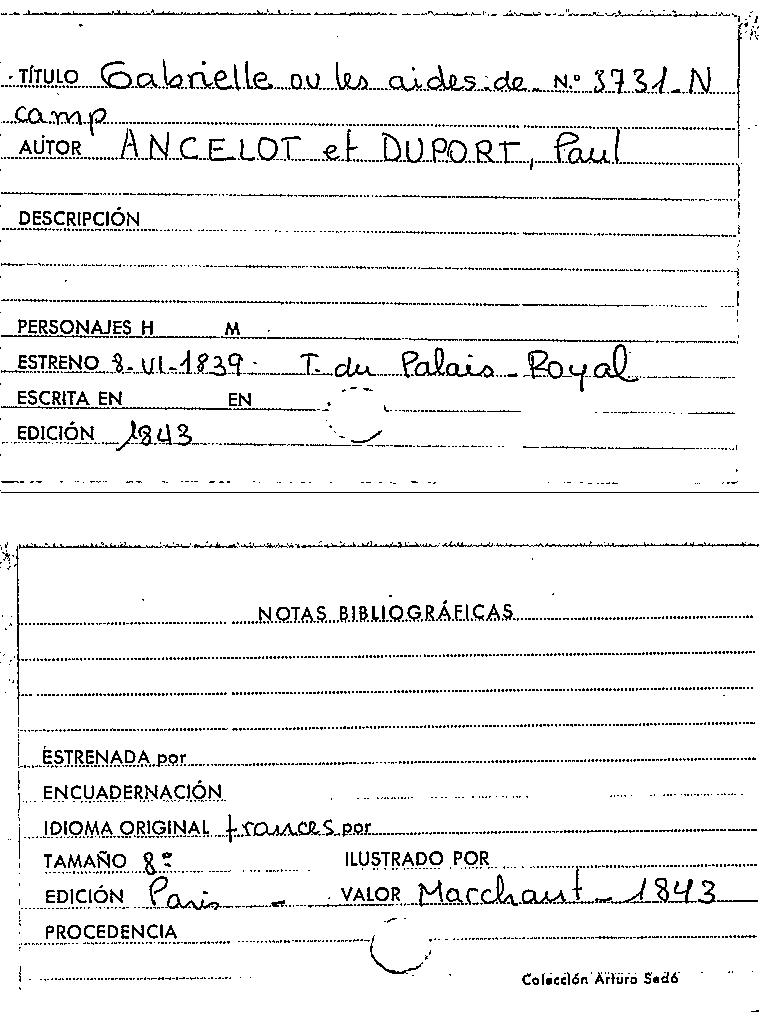 TÍTULO Gabrielle ou les aides-de- N.º 3731-N
camp
AUTOR ANCELOT et DUPORT, Paul
DESCRIPCIÓN
PERSONAJES H M
ESTRENO 8-VI-1839- T. du Palais-Royal
ESCRITA EN EN
EDICIÓN 1843
NOTAS BIBLIOGRÁFICAS
ESTRENADA por
ENCUADERNACIÓN
IDIOMA ORIGINAL frances por
TAMAÑO 8º ILUSTRADO POR
EDICIÓN Paris - VALOR Marchant - 1843
PROCEDENCIA
Colección Arturo Sedó